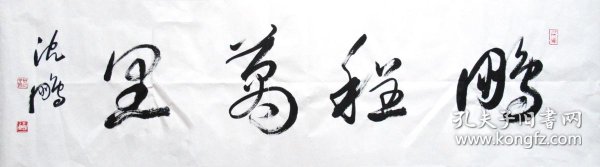 鵬程萬里
沈鵬
孔夫子旧书网
www.kongfz.com